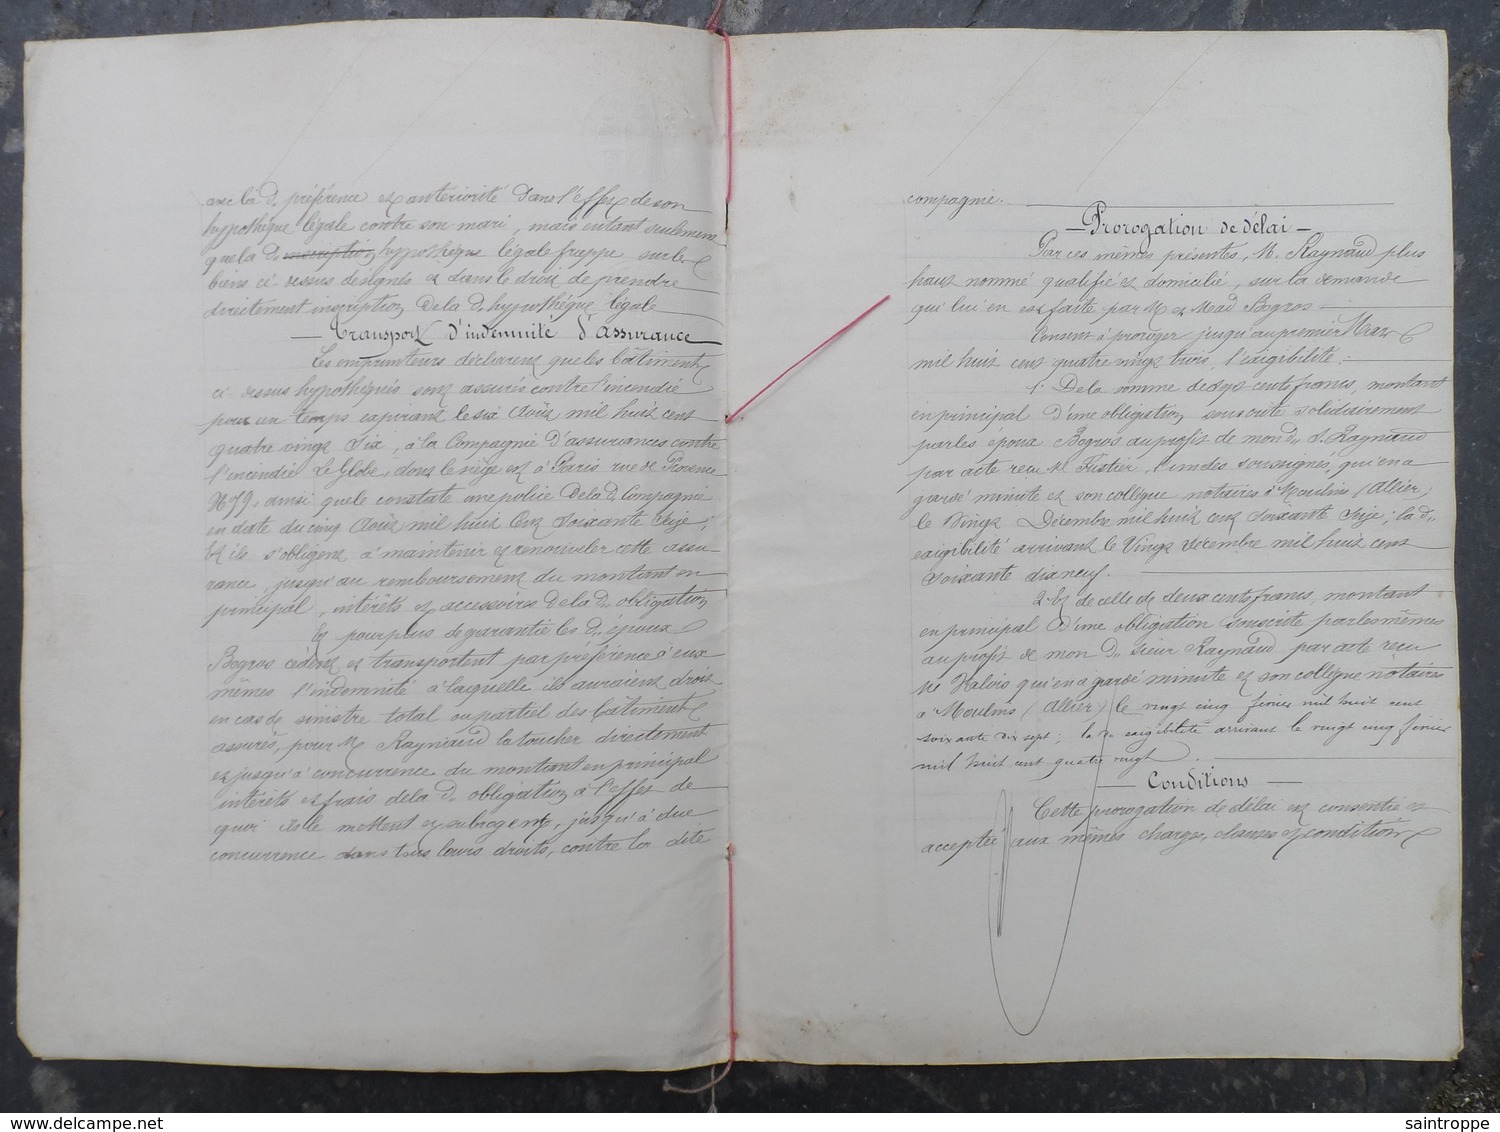 avec la d. préférence et antériorité dans l'effet de son
hypothèque légale contre son mari, mais entant seulement
que la d. inscription hypothèque légale frappe sur le
biens ci-dessus désignés et dans le droit de prendre
directement inscription de la d. hypothèque légale
— Transport d'indemnité d'assurance
Les emprunteurs déclarent que les bâtiments
ci-dessus hypothéqués sont assurés contre l'incendie
pour un temps expirant le six Août mil huit cent
quatre vingt six, à la Compagnie d'assurances contre
l'incendie Le Globe, dont le siège est à Paris rue de Provence
N° 79, ainsi que le constate une police de la d. Compagnie
en date du cinq Août mil huit cent soixante seize;
Et ils s'obligent à maintenir et renouveler cette assu-
rance, jusqu'au remboursement du montant en
principal, intérêts et accessoires de la d. obligation
Et pour plus de garantie les d. époux
Begros cèdent et transportent par préférence à eux
mêmes l'indemnité à laquelle ils auraient droit
en cas de sinistre total ou partiel des bâtiments
assurés, pour M. Raynaud la toucher directement
et jusqu'à concurrence du montant en principal
intérêts et frais de la d. obligation à l'effet de
quoi ils le mettent et subrogent, jusqu'à due
concurrence dans tous leurs droits, contre la dite
compagnie.
— Prorogation de délai —
Par ces mêmes présentes, M. Raynaud plus
haut nommé qualifié et domicilié, sur la demande
qui lui en est faite par M. et Mad Begros
Consent à proroger jusqu'au premier Mars
mil huit cent quatre vingt trois, l'exigibilité:
1° De la somme de sept cents francs, montant
en principal d'une obligation souscrite solidairement
par les époux Begros au profit de mon d. S. Raynaud
par acte reçu Me Tistier, l'un des soussignés, qui en a
gardé minute et son collègue notaires à Moulins (Allier)
le vingt Décembre mil huit cent soixante seize; la d.
exigibilité arrivant le vingt décembre mil huit cent
soixante dix neuf.
2° Et de celle de deux cents francs, montant
en principal d'une obligation souscrite par les mêmes
au profit de mon d. sieur Raynaud par acte reçu
Me Valois qui en a gardé minute et son collègue notaires
à Moulins (Allier) le vingt cinq février mil huit cent
soixante dix sept; la d. exigibilité arrivant le vingt cinq février
mil huit cent quatre vingt.
— Conditions —
Cette prorogation de délai est consentie et
acceptée aux mêmes charges, clauses et conditions
delcampe.net
saintroppe